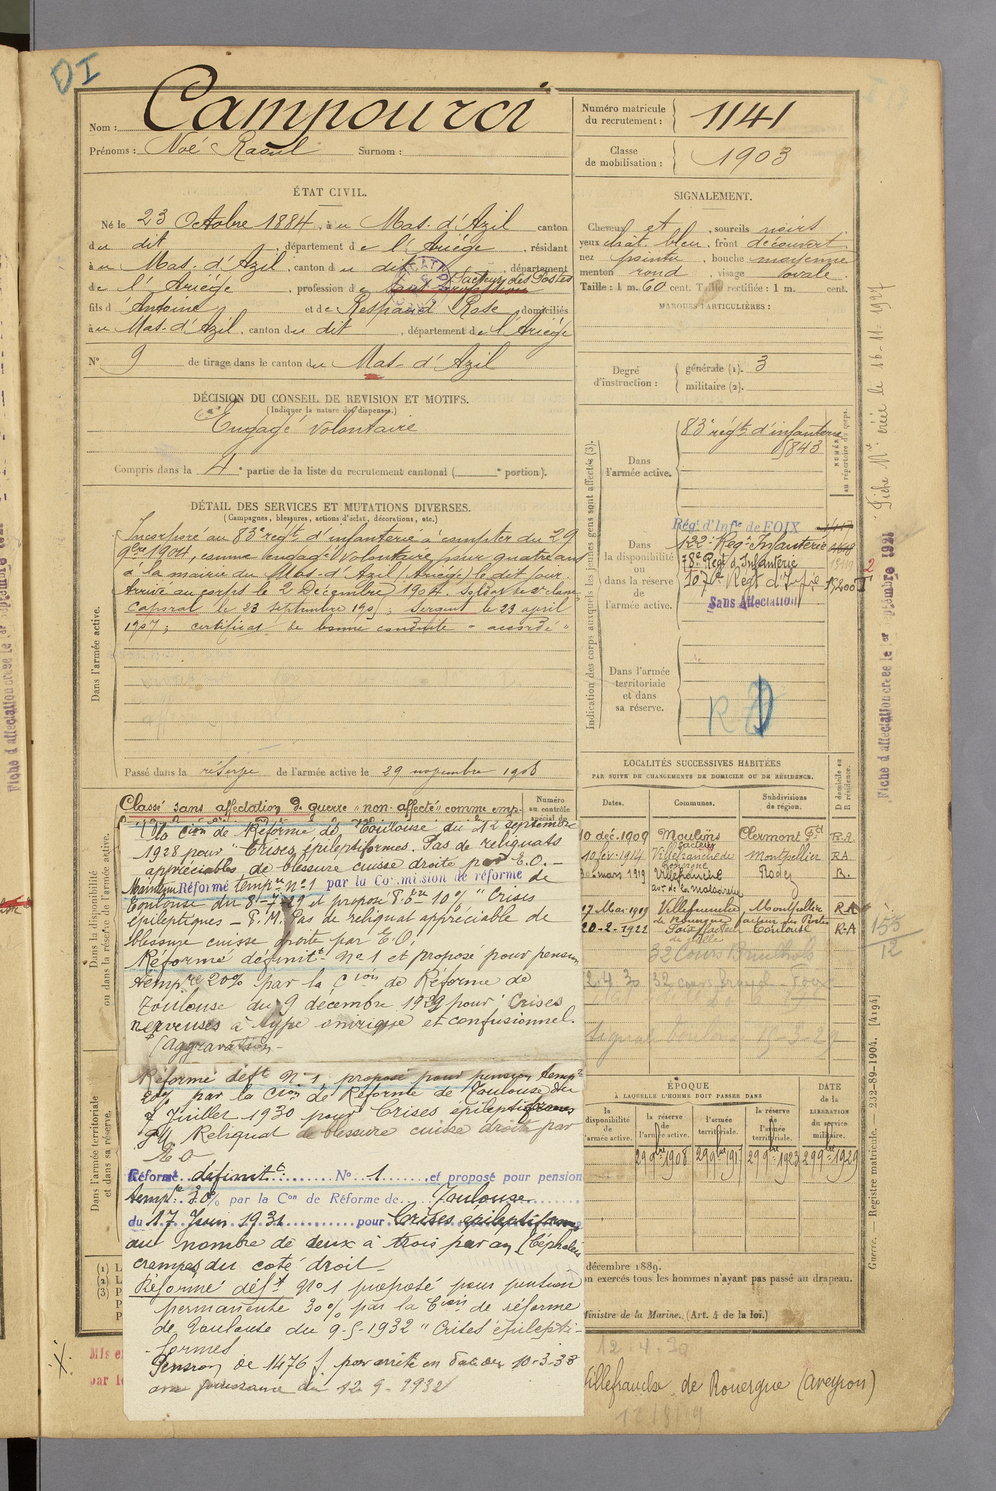 DI
Nom : Campourci
Prénoms : Noé Raoul Surnom :
Numéro matricule du recrutement : 1141
Classe de mobilisation : 1903
ÉTAT CIVIL.
Né le 23 Octobre 1884, à u Mas-d'Azil canton
du dit, département de l'Ariége, résidant
à u Mas-d'Azil, canton du dit, département
de l'Ariége, profession de facteur des Postes
fils d'Antoine et de Respaud Rose domiciliés
à u Mas-d'Azil, canton du dit, département de l'Ariége
N° 9 de tirage dans le canton du Mas-d'Azil
SIGNALEMENT.
Cheveux et, sourcils noirs
yeux chât. bleu, front découvert
nez pointu, bouche moyenne
menton rond, visage ovale.
Taille : 1 m. 60 cent. Taille rectifiée : 1 m. cent.
MARQUES PARTICULIÈRES :
Degré d'instruction : générale (1). 3
militaire (2).
DÉCISION DU CONSEIL DE REVISION ET MOTIFS.
(Indiquer la nature des dispenses.)
Engagé volontaire
Compris dans la 4e partie de la liste du recrutement cantonal ( e portion).
DÉTAIL DES SERVICES ET MUTATIONS DIVERSES.
(Campagnes, blessures, actions d'éclat, décorations, etc.)
Dans l'armée active.
Incorporé au 83e régt d'infanterie à compter du 29
9bre 1904, comme engagé volontaire pour quatre ans
à la mairie du Mas-d'Azil (Ariége) le dit jour.
Arrivé au corps le 2 Décembre 1904. Soldat de 2e classe
Caporal le 23 septembre 1905; Sergent le 23 april
1907; certificat de bonne conduite "accordé"
Passé dans la réserve de l'armée active le 29 novembre 1908
Indication des corps auxquels les jeunes gens sont affectés (3).
NUMÉRO au répertoire du corps.
Dans l'armée active.
83e régt d'infanterie
5843
Dans la disponibilité ou dans la réserve de l'armée active.
Régt d'Infie de FOIX
122e Regt Infanterie
78e Regt d'Infanterie
107e Regt d'Infie
Sans Affectation
Dans l'armée territoriale et dans sa réserve.
LOCALITÉS SUCCESSIVES HABITÉES
PAR SUITE DE CHANGEMENTS DE DOMICILE OU DE RÉSIDENCE.
Dates. Communes. Subdivisions de région. D domicile ou R résidence.
10 déc. 1909 Moulins Clermont Fd R.A
10 fév. 1914 Villefranche de Montpellier RA
mars 1919 Villefranche Rodez R.
17 Mai 1919 Villefranche Montpellier RA
de Rouergue facteur des Postes
20-2-1922 Foix Toulouse R-A
155
12
Classé sans affectation de guerre "non affecté" comme emp-
Numéro au contrôle spécial du
Dans la disponibilité ou dans la réserve de l'armée active.
la Cion de Réforme de Toulouse du 12 septembre
1928 pour "Crises épileptiformes. Pas de reliquats
appréciables de blessure cuisse droite par E.O. –
Maintenu Réformé tempre n° 1 par la Commission de réforme de
Toulouse du 8-7-29 et proposé P.tre 10% "Crises
épileptiques – P.M. Pas de reliquat appréciable de
blessure cuisse droite par E.O.
Réformé définitt n°1 et proposé pour pension
tempre 20% par la Cion de Réforme de
Toulouse du 9 décembre 1929 pour "Crises
nerveuses à type onirique et confusionnel.
(Aggravation –
Réformé déft n° 1 proposé pour pension tempre
20% par la Cion de Réforme de Toulouse du
Juillet 1930 pour Crises épileptiformes
Reliquat de blessure cuisse droite par
E O
Réformé définitt N° 1 et proposé pour pension
tempre 30% par la Con de Réforme de Toulouse
du 17 Juin 1931 pour Crises épileptiformes
au nombre de deux à trois par an (Céphalées
crampes du coté droit –
Réformé déft N°1 proposé pour pension
permanente 30% par la Cion de réforme
de Toulouse du 9-5-1932 "Crises épilepti-
-formes
Pension de 1476 f par arrêté en date du 10-3-38
avec jouissance du 12-9-1932
Dans l'armée territoriale et dans sa réserve.
ÉPOQUE
À LAQUELLE L'HOMME DOIT PASSER DANS
DATE de la LIBÉRATION du service militaire.
la disponibilité de l'armée active. la réserve de l'armée active. l'armée territoriale. la réserve de l'armée territoriale.
29 9bre 1908 29 9bre 191 29 9bre 1923 29 9bre 1929
décembre 1889.
on exercés tous les hommes n'ayant pas passé au drapeau.
Ministre de la Marine. (Art. 4 de la loi.)
(1) L
(2) L
(3) P
Villefranche de Rouergue (Aveyron)
Guerre. — Registre matricule. — 232-89-1904. [4194]
Fiche Mle créée le 16-11-1927
Fiche d'affectation créée le 1er septembre 1921